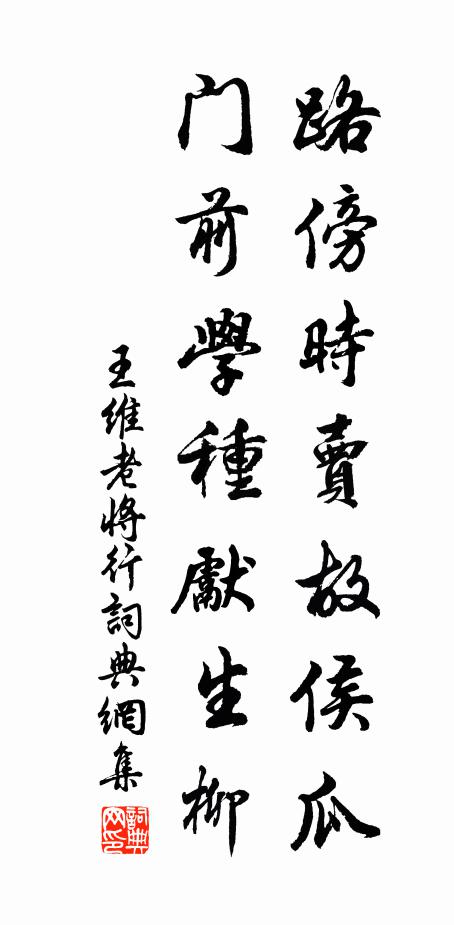 路傍時賣故侯瓜
門前學種獻生柳
王維老將行詞典網集
詞典网印